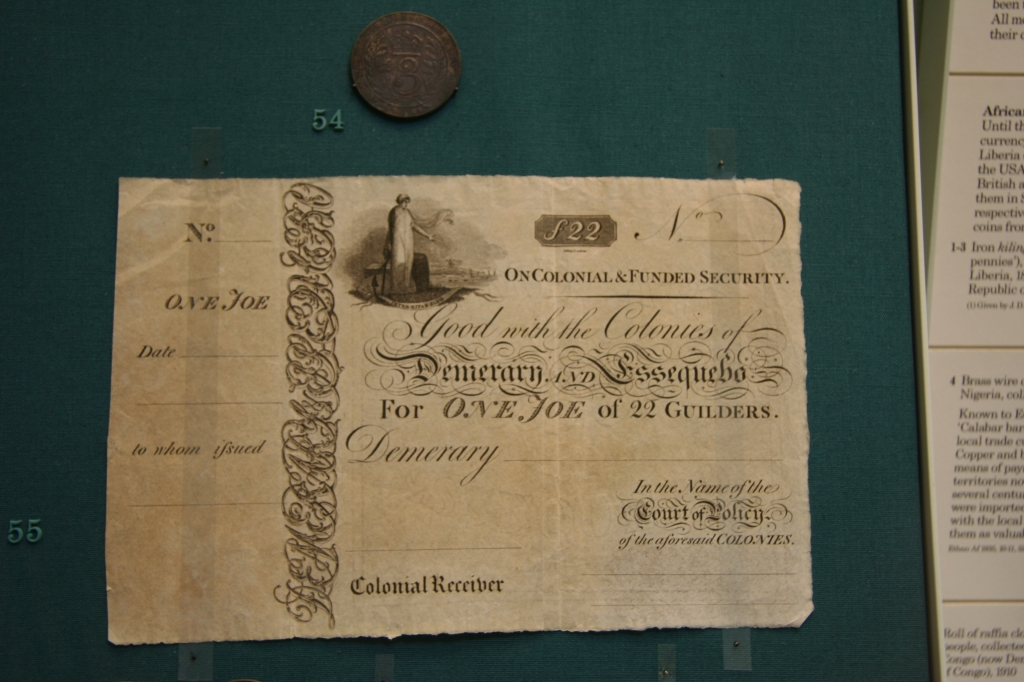 54
55
Nº.
ONE JOE
Date
to whom ifsued
ƒ22
Nº
ON COLONIAL & FUNDED SECURITY.
Good with the Colonies of
Demerary AND Essequebo
For ONE JOE of 22 GUILDERS.
Demerary
In the Name of the
Court of Policy.
of the aforesaid COLONIES.
Colonial Receiver
been
All
their
Until
currenc
Liberia
the USA
British
them in
respectiv
coins fro
1-3 Iron kilin
pennies'),
Liberia,
Republic
4 Brass wire
Nigeria, col
Known to
'Calabar bar
local trade
Copper and
means of pay
territories
several centu
were importe
with the local
them as valua
Roll of raffia
people, collecte
Congo (now
f Congo), 1910